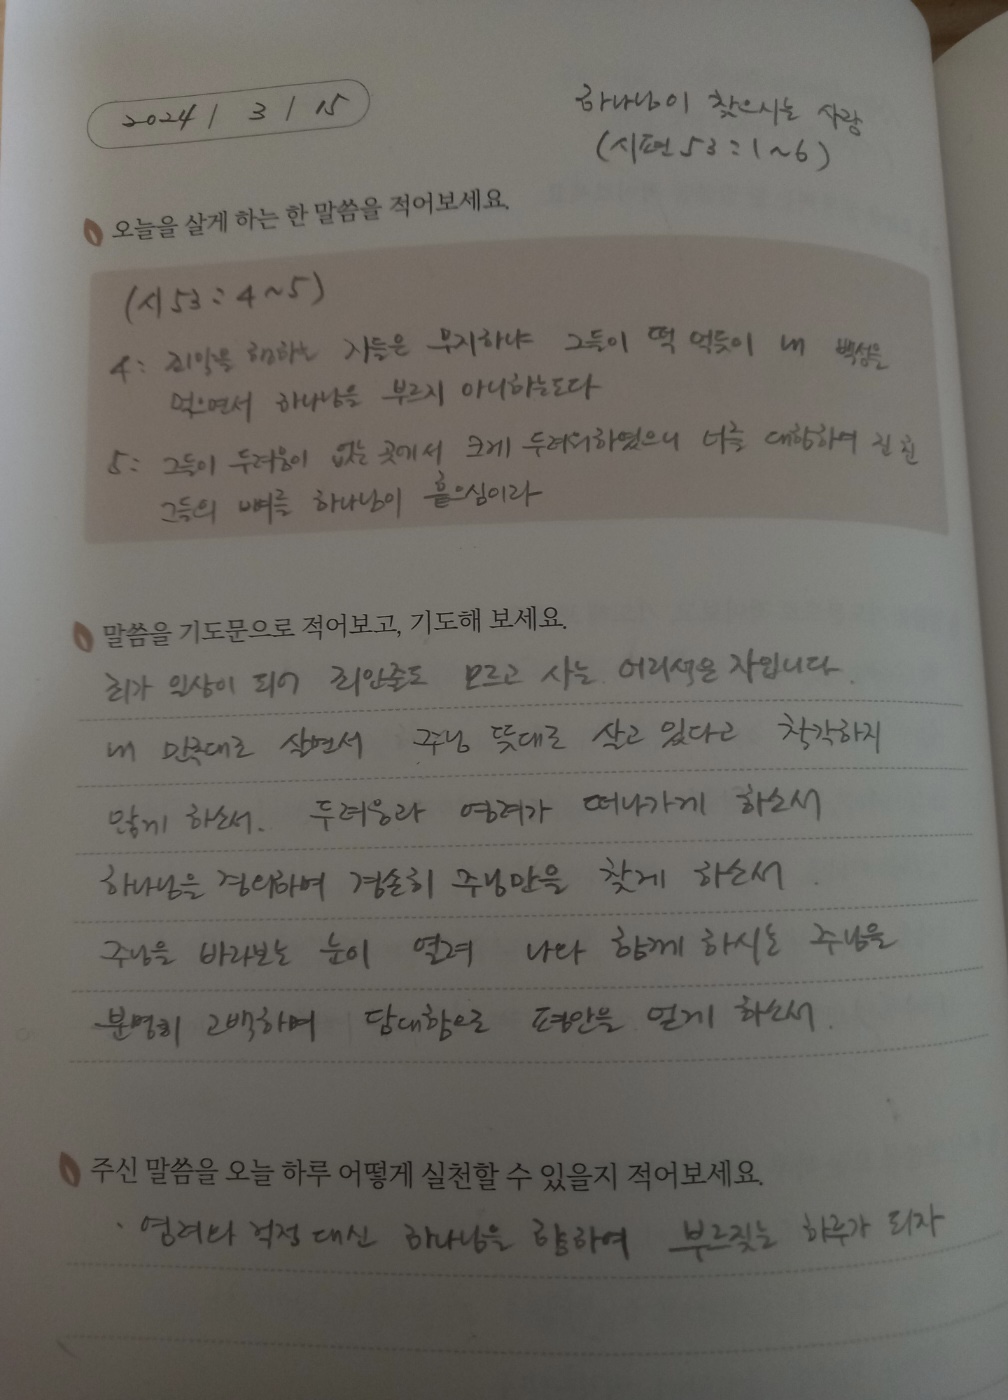 2024 / 3 / 15
하나님이 찾으시는 사람
(시편 53:1~6)
오늘을 살게 하는 한 말씀을 적어보세요.
(시 53:4~5)
4: 죄악을 행하는 자들은 무지하냐 그들이 떡 먹듯이 내 백성을
먹으면서 하나님을 부르지 아니하는도다
5: 그들이 두려움이 없는 곳에서 크게 두려워하였으니 너를 대항하여 진 친
그들의 뼈를 하나님이 흩으심이라
말씀을 기도문으로 적어보고, 기도해 보세요.
죄가 일상이 되어 죄인줄도 모르고 사는 어리석은 자입니다.
내 만족대로 살면서 주님 뜻대로 살고 있다고 착각하지
않게 하소서. 두려움과 염려가 떠나가게 하소서
하나님을 경외하여 겸손히 주님만을 찾게 하소서.
주님을 바라보는 눈이 열려 나와 함께 하시는 주님을
분명히 고백하며 담대함으로 평안을 얻게 하소서.
주신 말씀을 오늘 하루 어떻게 실천할 수 있을지 적어보세요.
· 염려와 걱정 대신 하나님을 향하여 부르짖는 하루가 되자